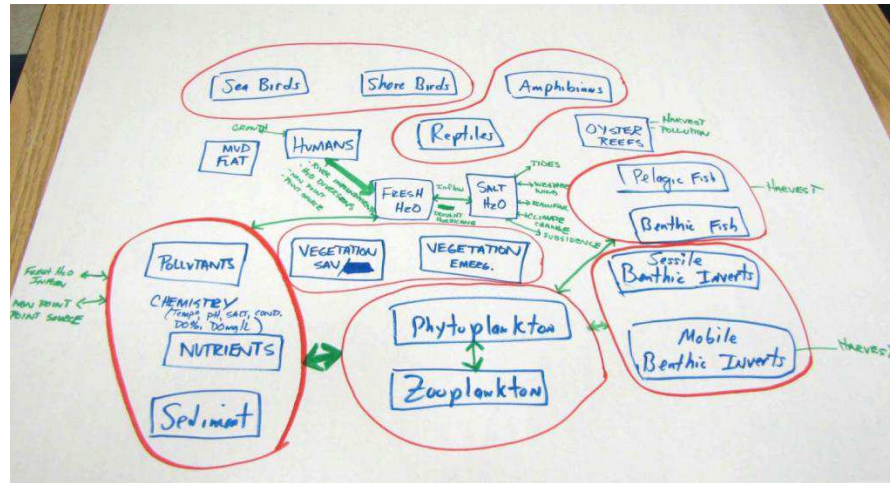 Sea Birds
Shore Birds
Amphibians
Reptiles
OYSTER
REEFS
HARVEST
POLLUTION
GROWTH
HUMANS
MUD
FLAT
• RIVER IMPOUNDMENT
• H2O DIVERSIONS
• NON POINT
• POINT SOURCE
FRESH
H2O
Inflow
DROUGHT
HURRICANE
SALT
H2O
TIDES
WIND
RAINFALL
CLIMATE
CHANGE
SUBSIDENCE
Pelagic Fish
HARVEST
Benthic Fish
VEGETATION
SAV/
VEGETATION
EMERG.
Sessile
Benthic Inverts
Mobile
Benthic Inverts
HARVEST
POLLUTANTS
CHEMISTRY
(Temp, pH, SALT, COND.
DO%, DOmg/L)
NUTRIENTS
Sediment
FRESH H2O
INFLOW
NON POINT
POINT SOURCE
Phytoplankton
Zooplankton